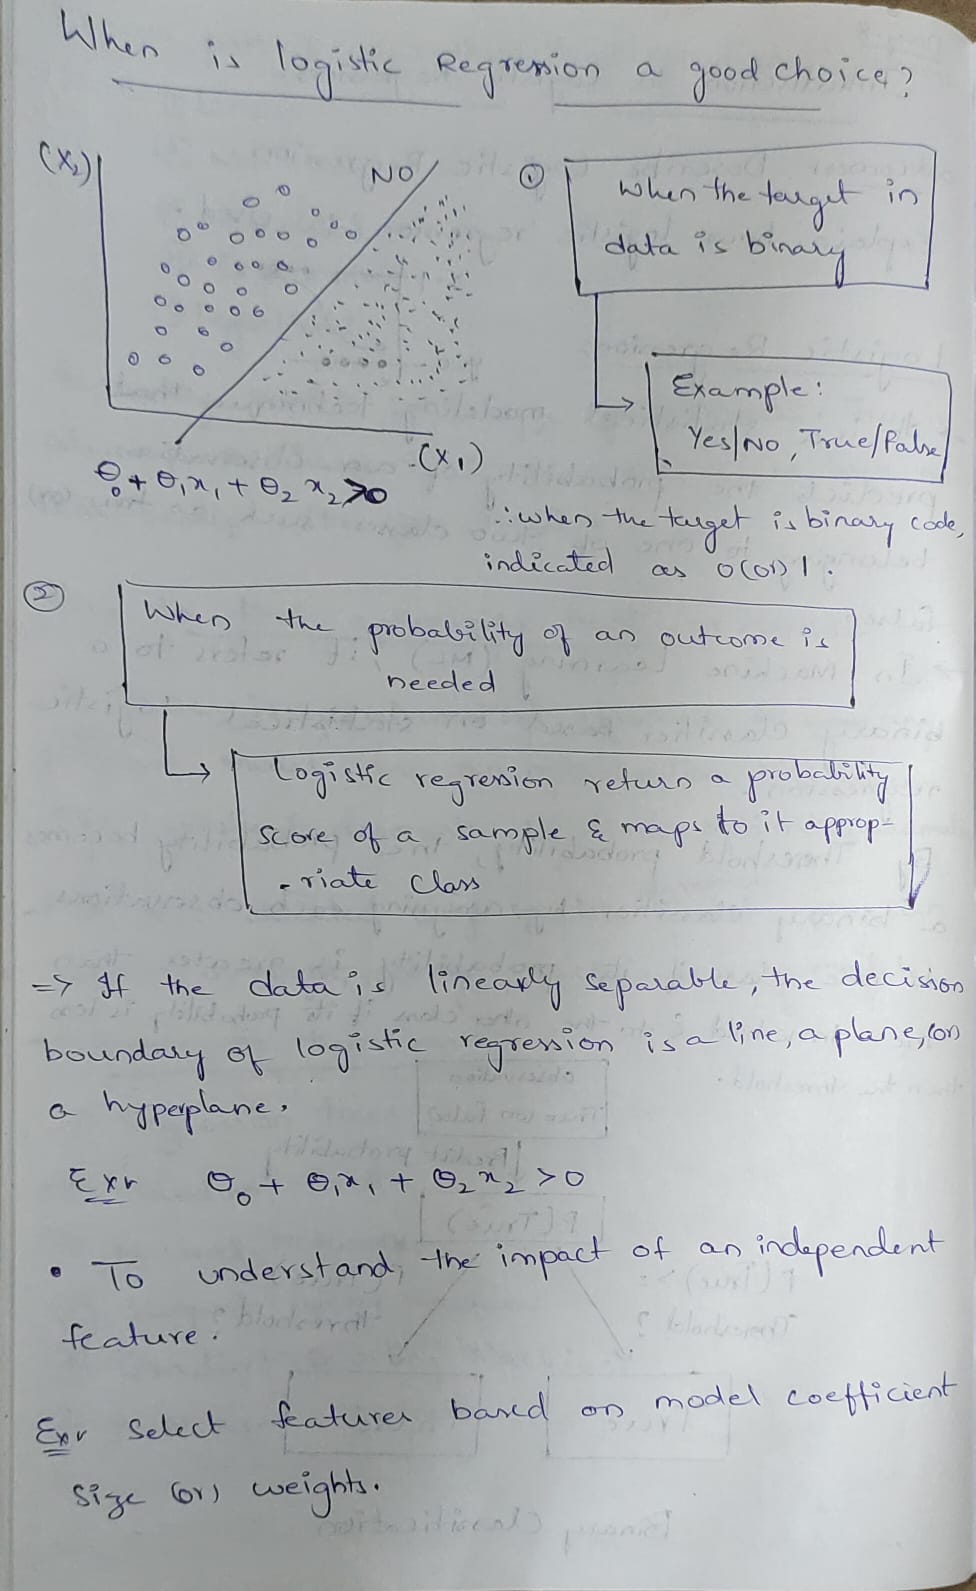 When is logistic Regression a good choice?
(X2)
NO
① When the target in
data is binary
Example:
Yes/No, True/False
(X1)
θ0 + θ1x1 + θ2x2 >0
∴ when the target is binary code,
indicated as 0 (or) 1.
② When the probability of an outcome is
needed
Logistic regression return a probability
score of a sample & maps to it approp-
-riate class
=> If the data is linearly separable, the decision
boundary of logistic regression is a line, a plane, (or)
a hyperplane.
Ex:- θ0 + θ1x1 + θ2x2 >0
• To understand, the impact of an independent
feature.
Ex:- Select features based on model coefficient
size (or) weights.